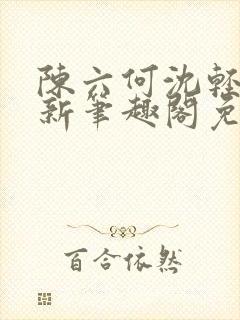 陳六何沈輕
新筆趣閣免
百合依然